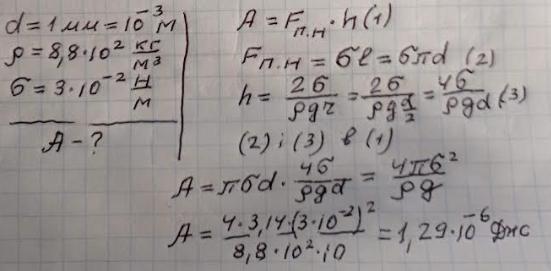 d = 1 мм = 10⁻³ м
ρ = 8,8·10² кг/м³
σ = 3·10⁻² Н/м
A - ?
A = Fп.н · h (1)
Fп.н = σℓ = σπd (2)
h = 2σ/ρgr = 2σ/ρg d/2 = 4σ/ρgd (3)
(2) і (3) в (1)
A = πσd · 4σ/ρgd = 4πσ²/ρg
A = 4·3,14·(3·10⁻²)²/8,8·10²·10 = 1,29·10⁻⁶ Дж